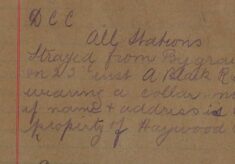 D C C
All Stations
Strayed from By gra
on 23 inst A Black R
wearing a collar n
if name & address is
property of Haywood